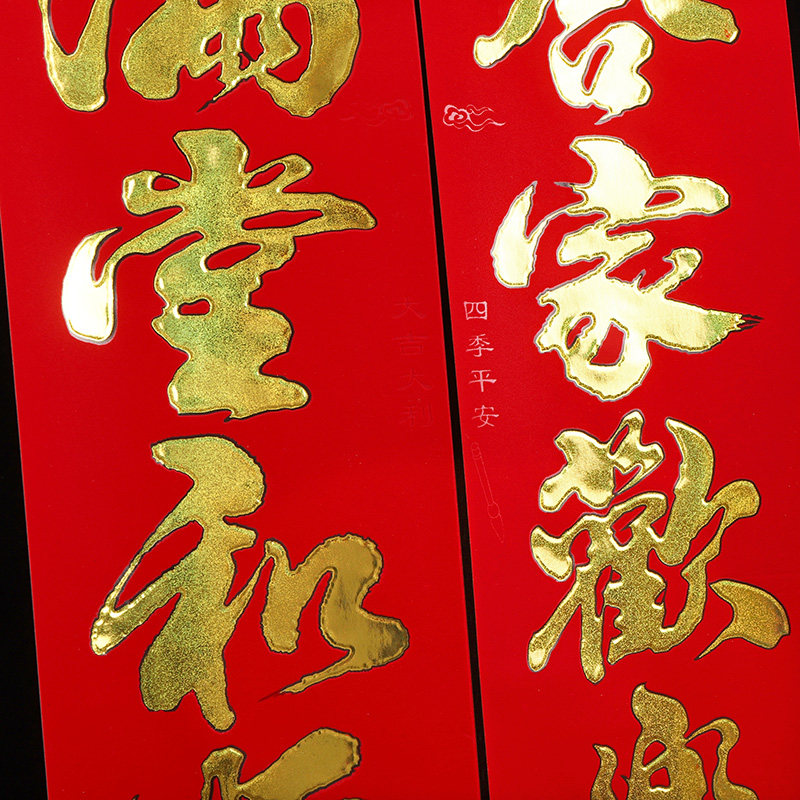 合家歡樂
四季平安
大吉大利
滿堂和